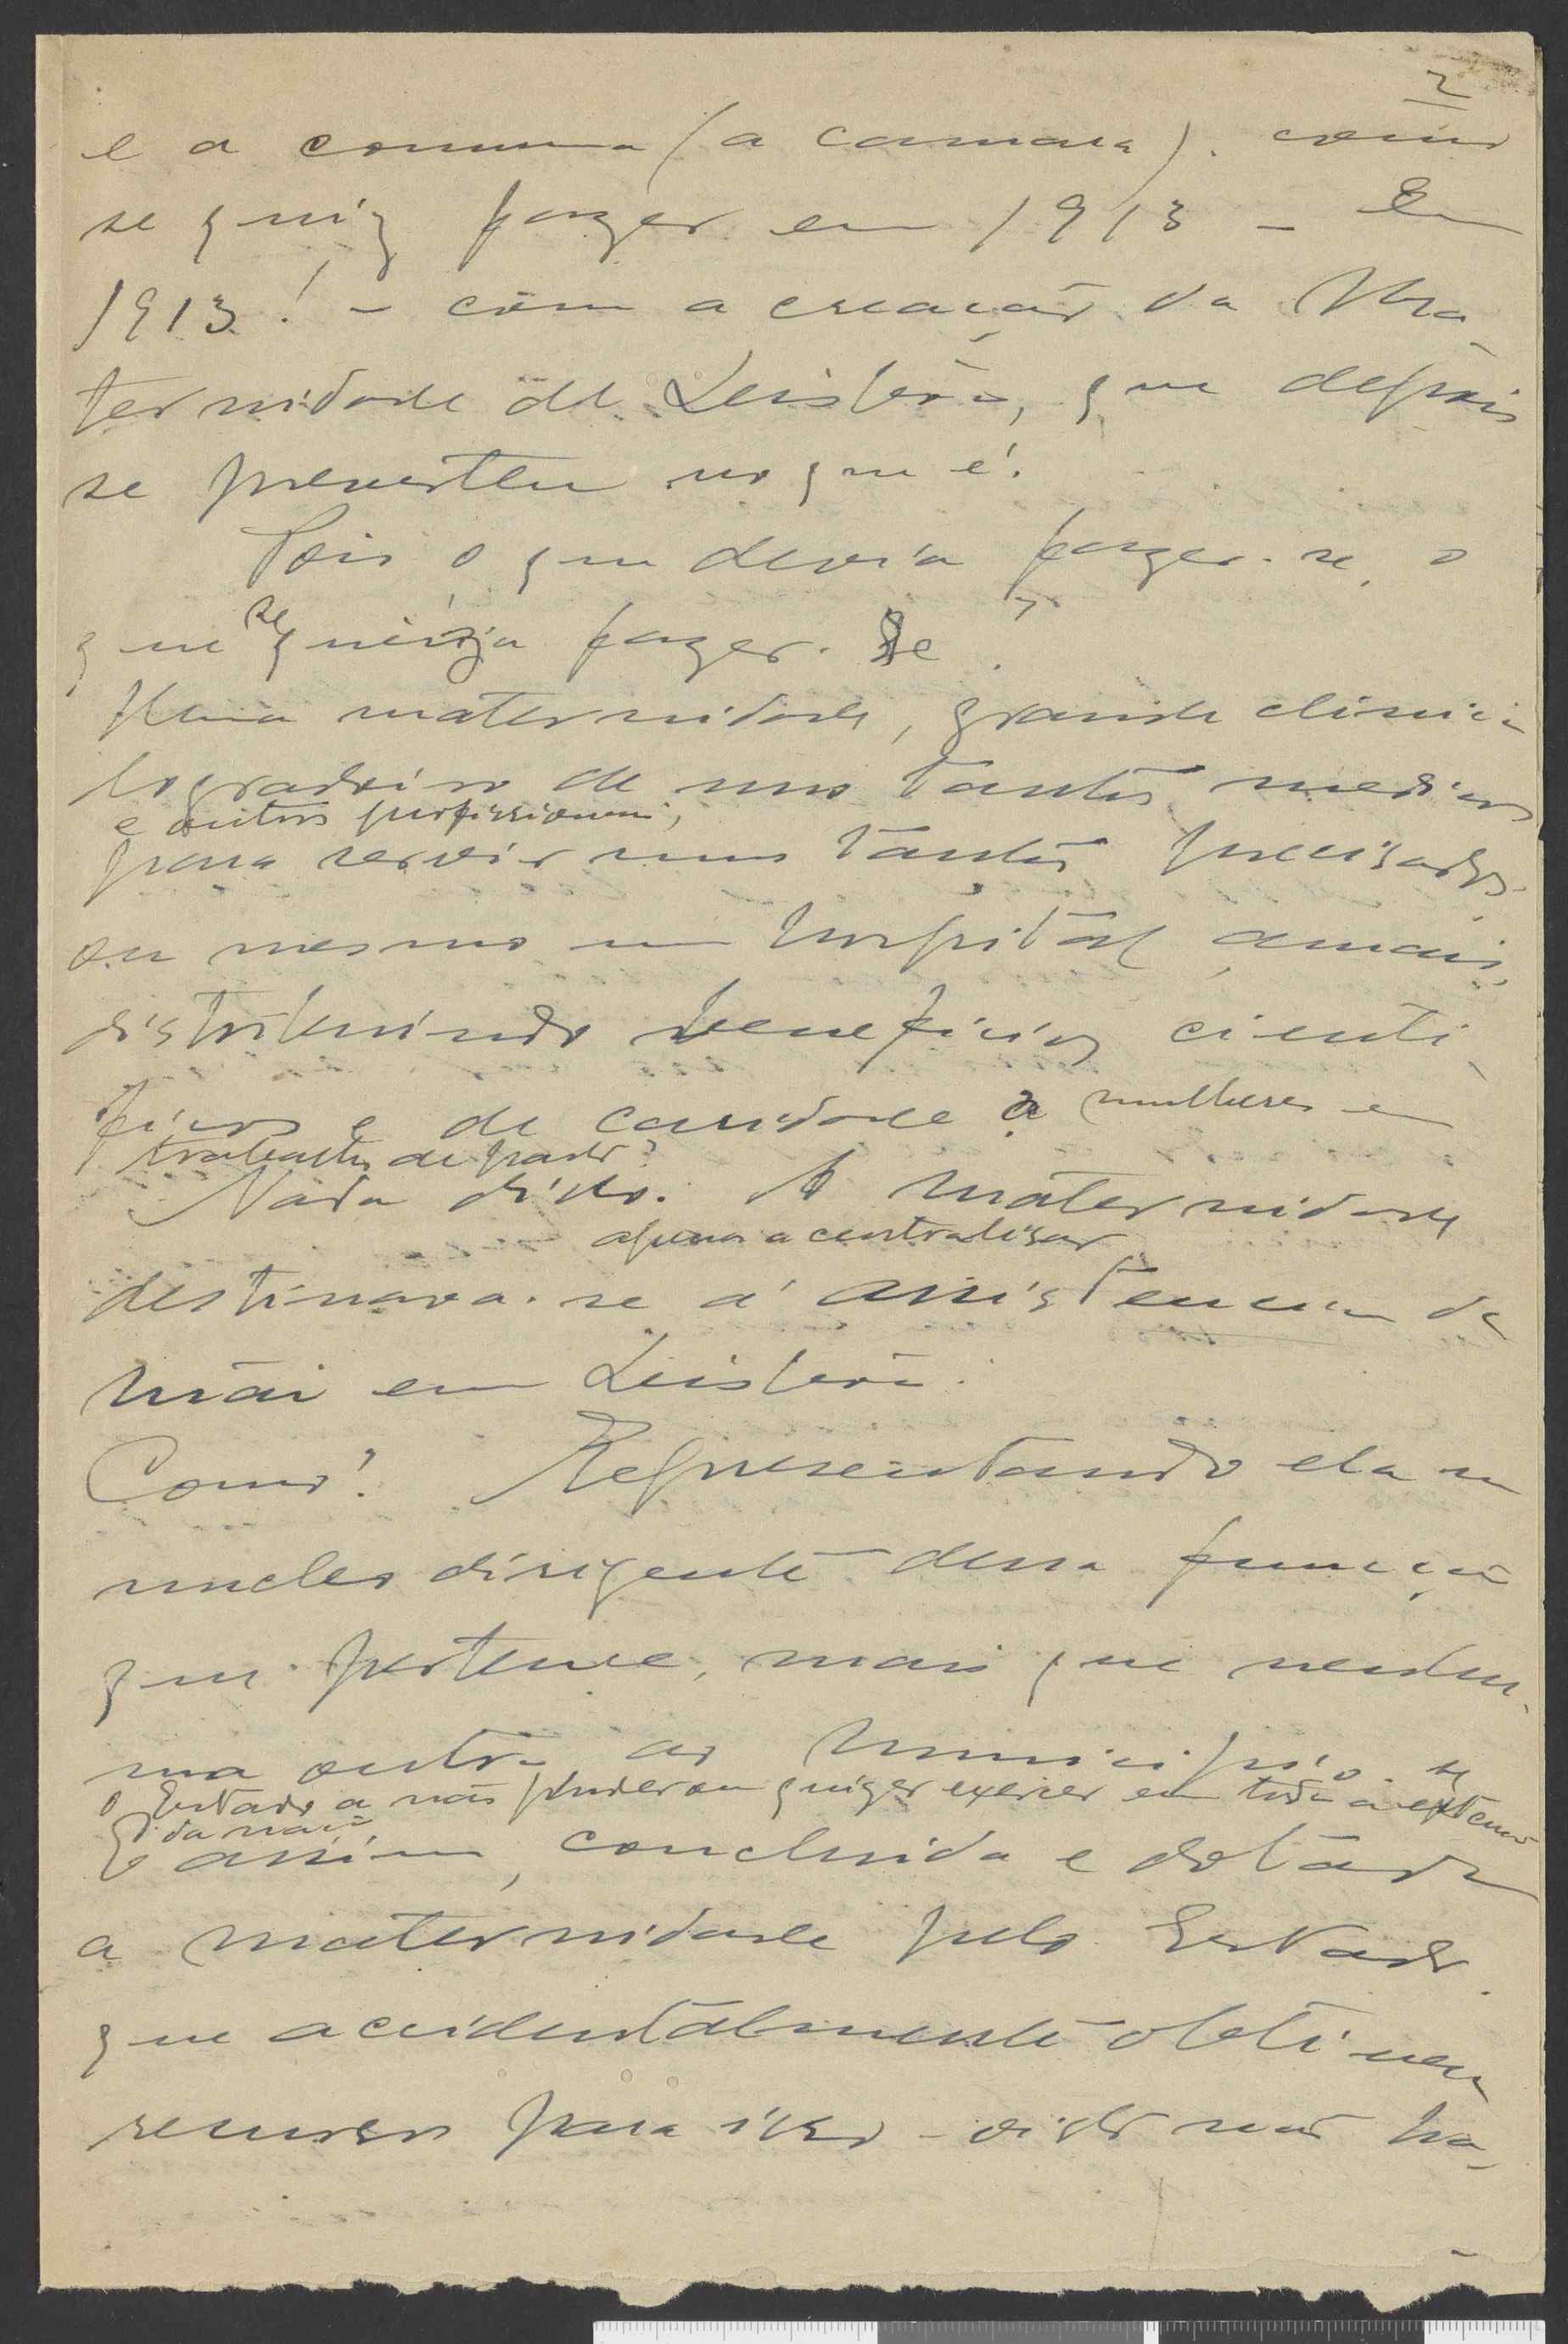 2
e a comuna (a camara). como
se quiz fazer em 1913 - Em
1913! - com a creação da Ma
ternidade de Lisboa, que depois
se preverteu no que é.
Pois o que devia fazer-se, o
que se queria fazer-se?
Uma maternidade, grande clinica
logradoiro de uns tantos medicos
e outros profissionais,
para servir uns tantos precisados.
ou mesmo um hospital amais,
distribuindo beneficios cienti
ficos e de caridade a mulheres em
trabalho de parto?
Nada disso. A maternidade
apenas a centralisar
destinava-se á assistencia da
mãi em Lisboa.
Como? Representando ela um
nucleo dirigente dessa função
que pertence, mais que nenhu-
ma outra ao Municipio. se
o Estado a não puder ou quizer exercer em toda a extensão
da nação
E assim, concluida e dotada
a maternidade pelo Estado.
que accidentalmente obtivera
recursos para isso - visto não ha-